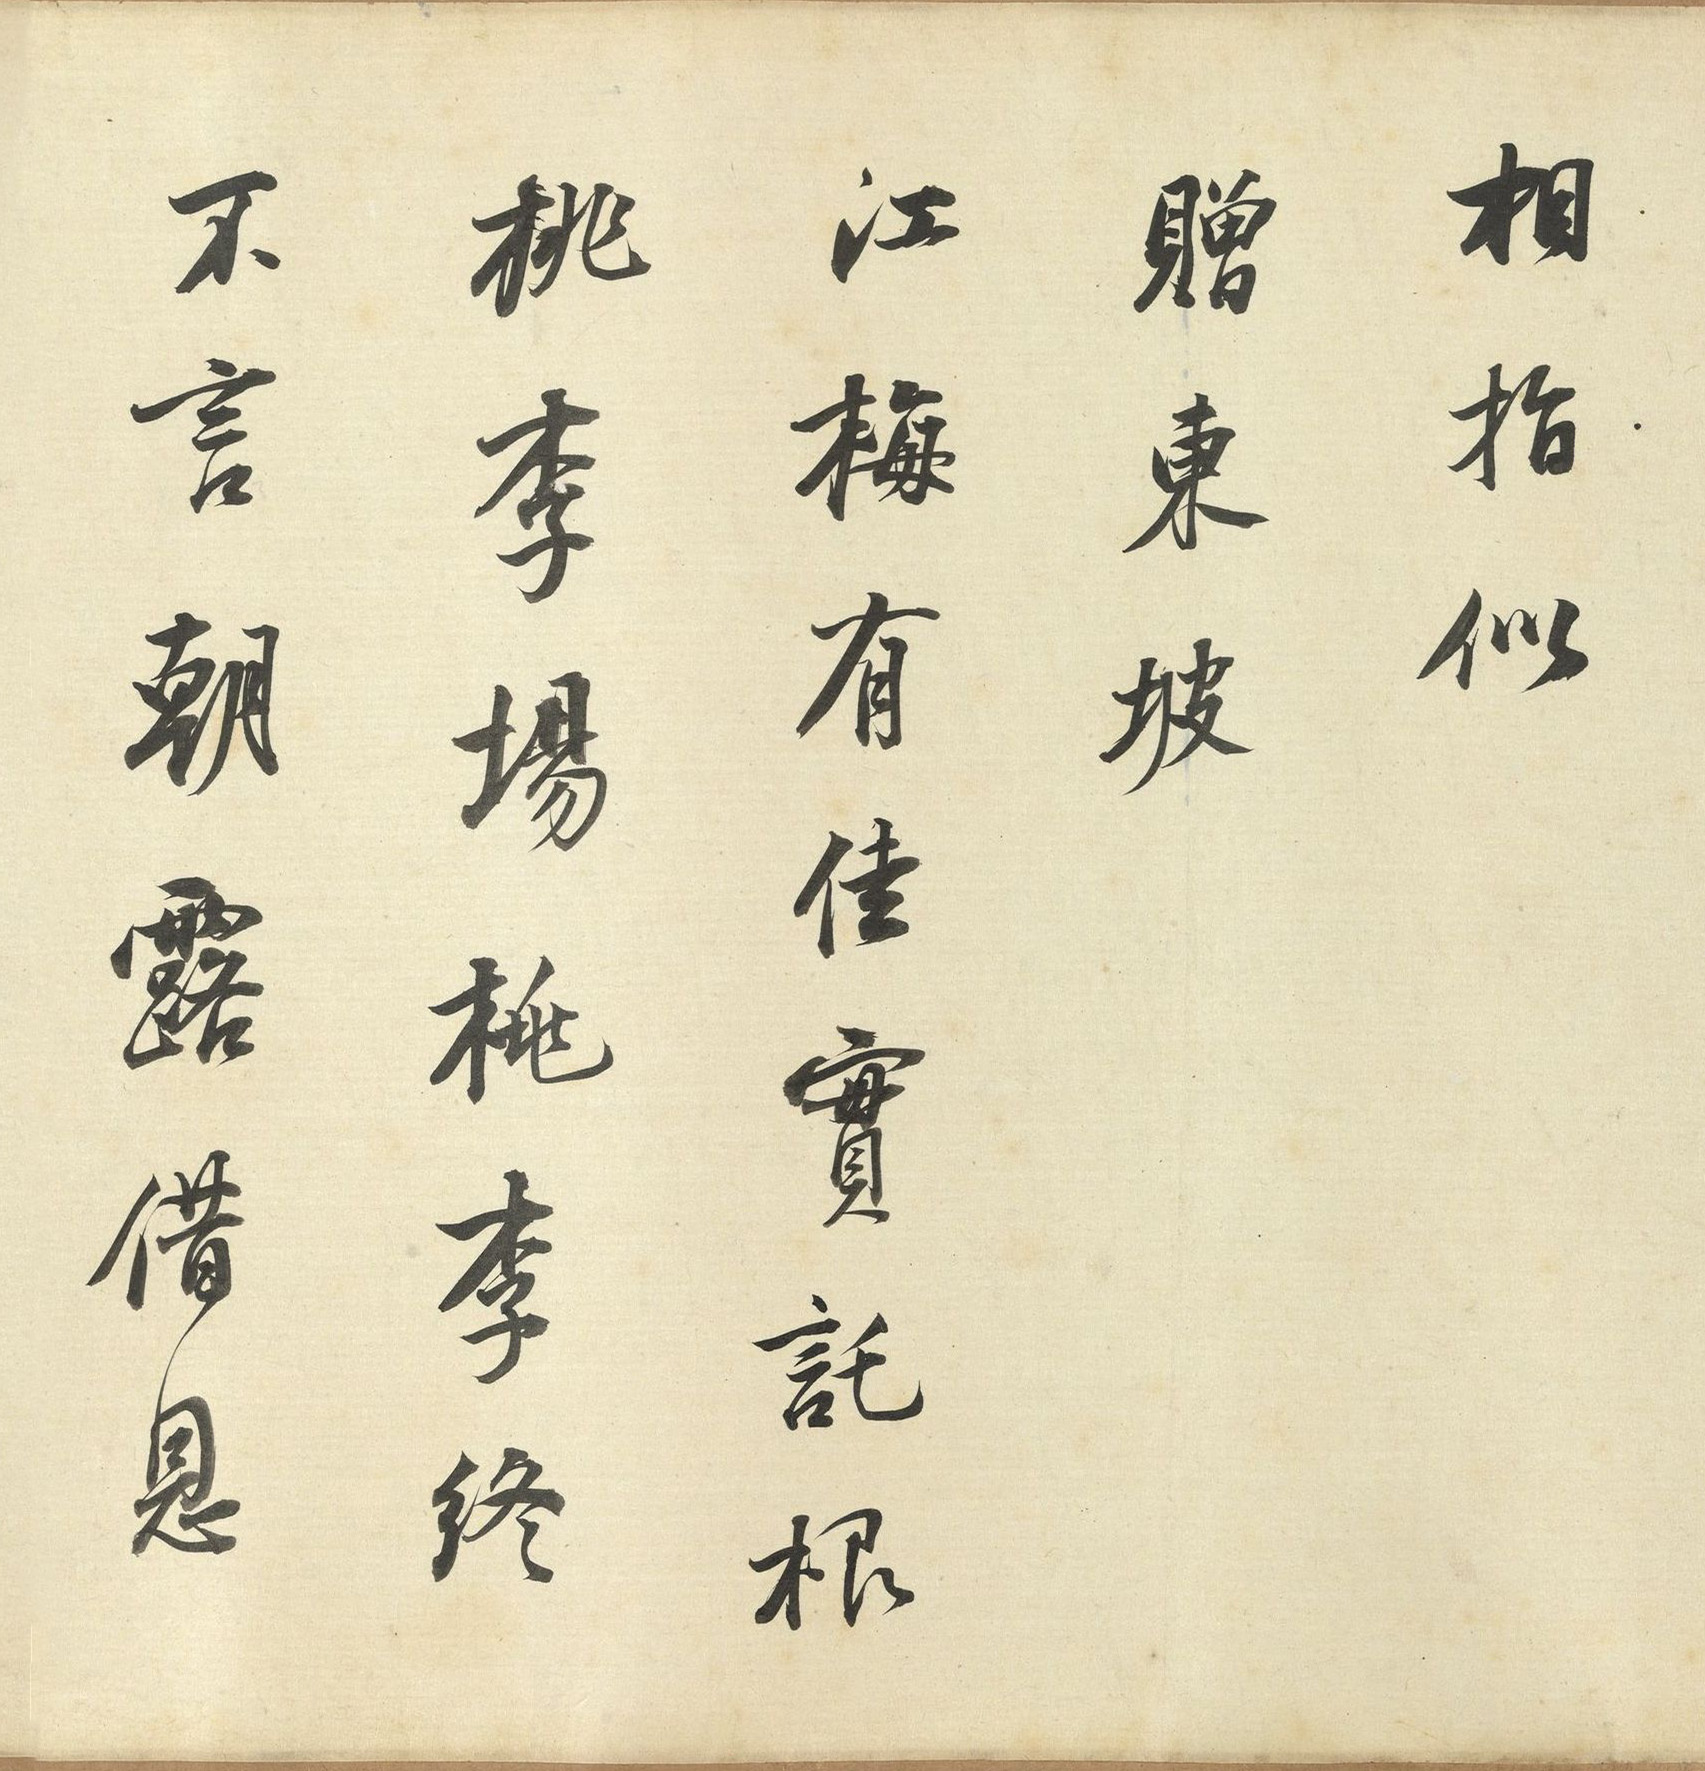 相指似
贈東坡
江梅有佳實託根
桃李場桃李終
不言朝露借恩